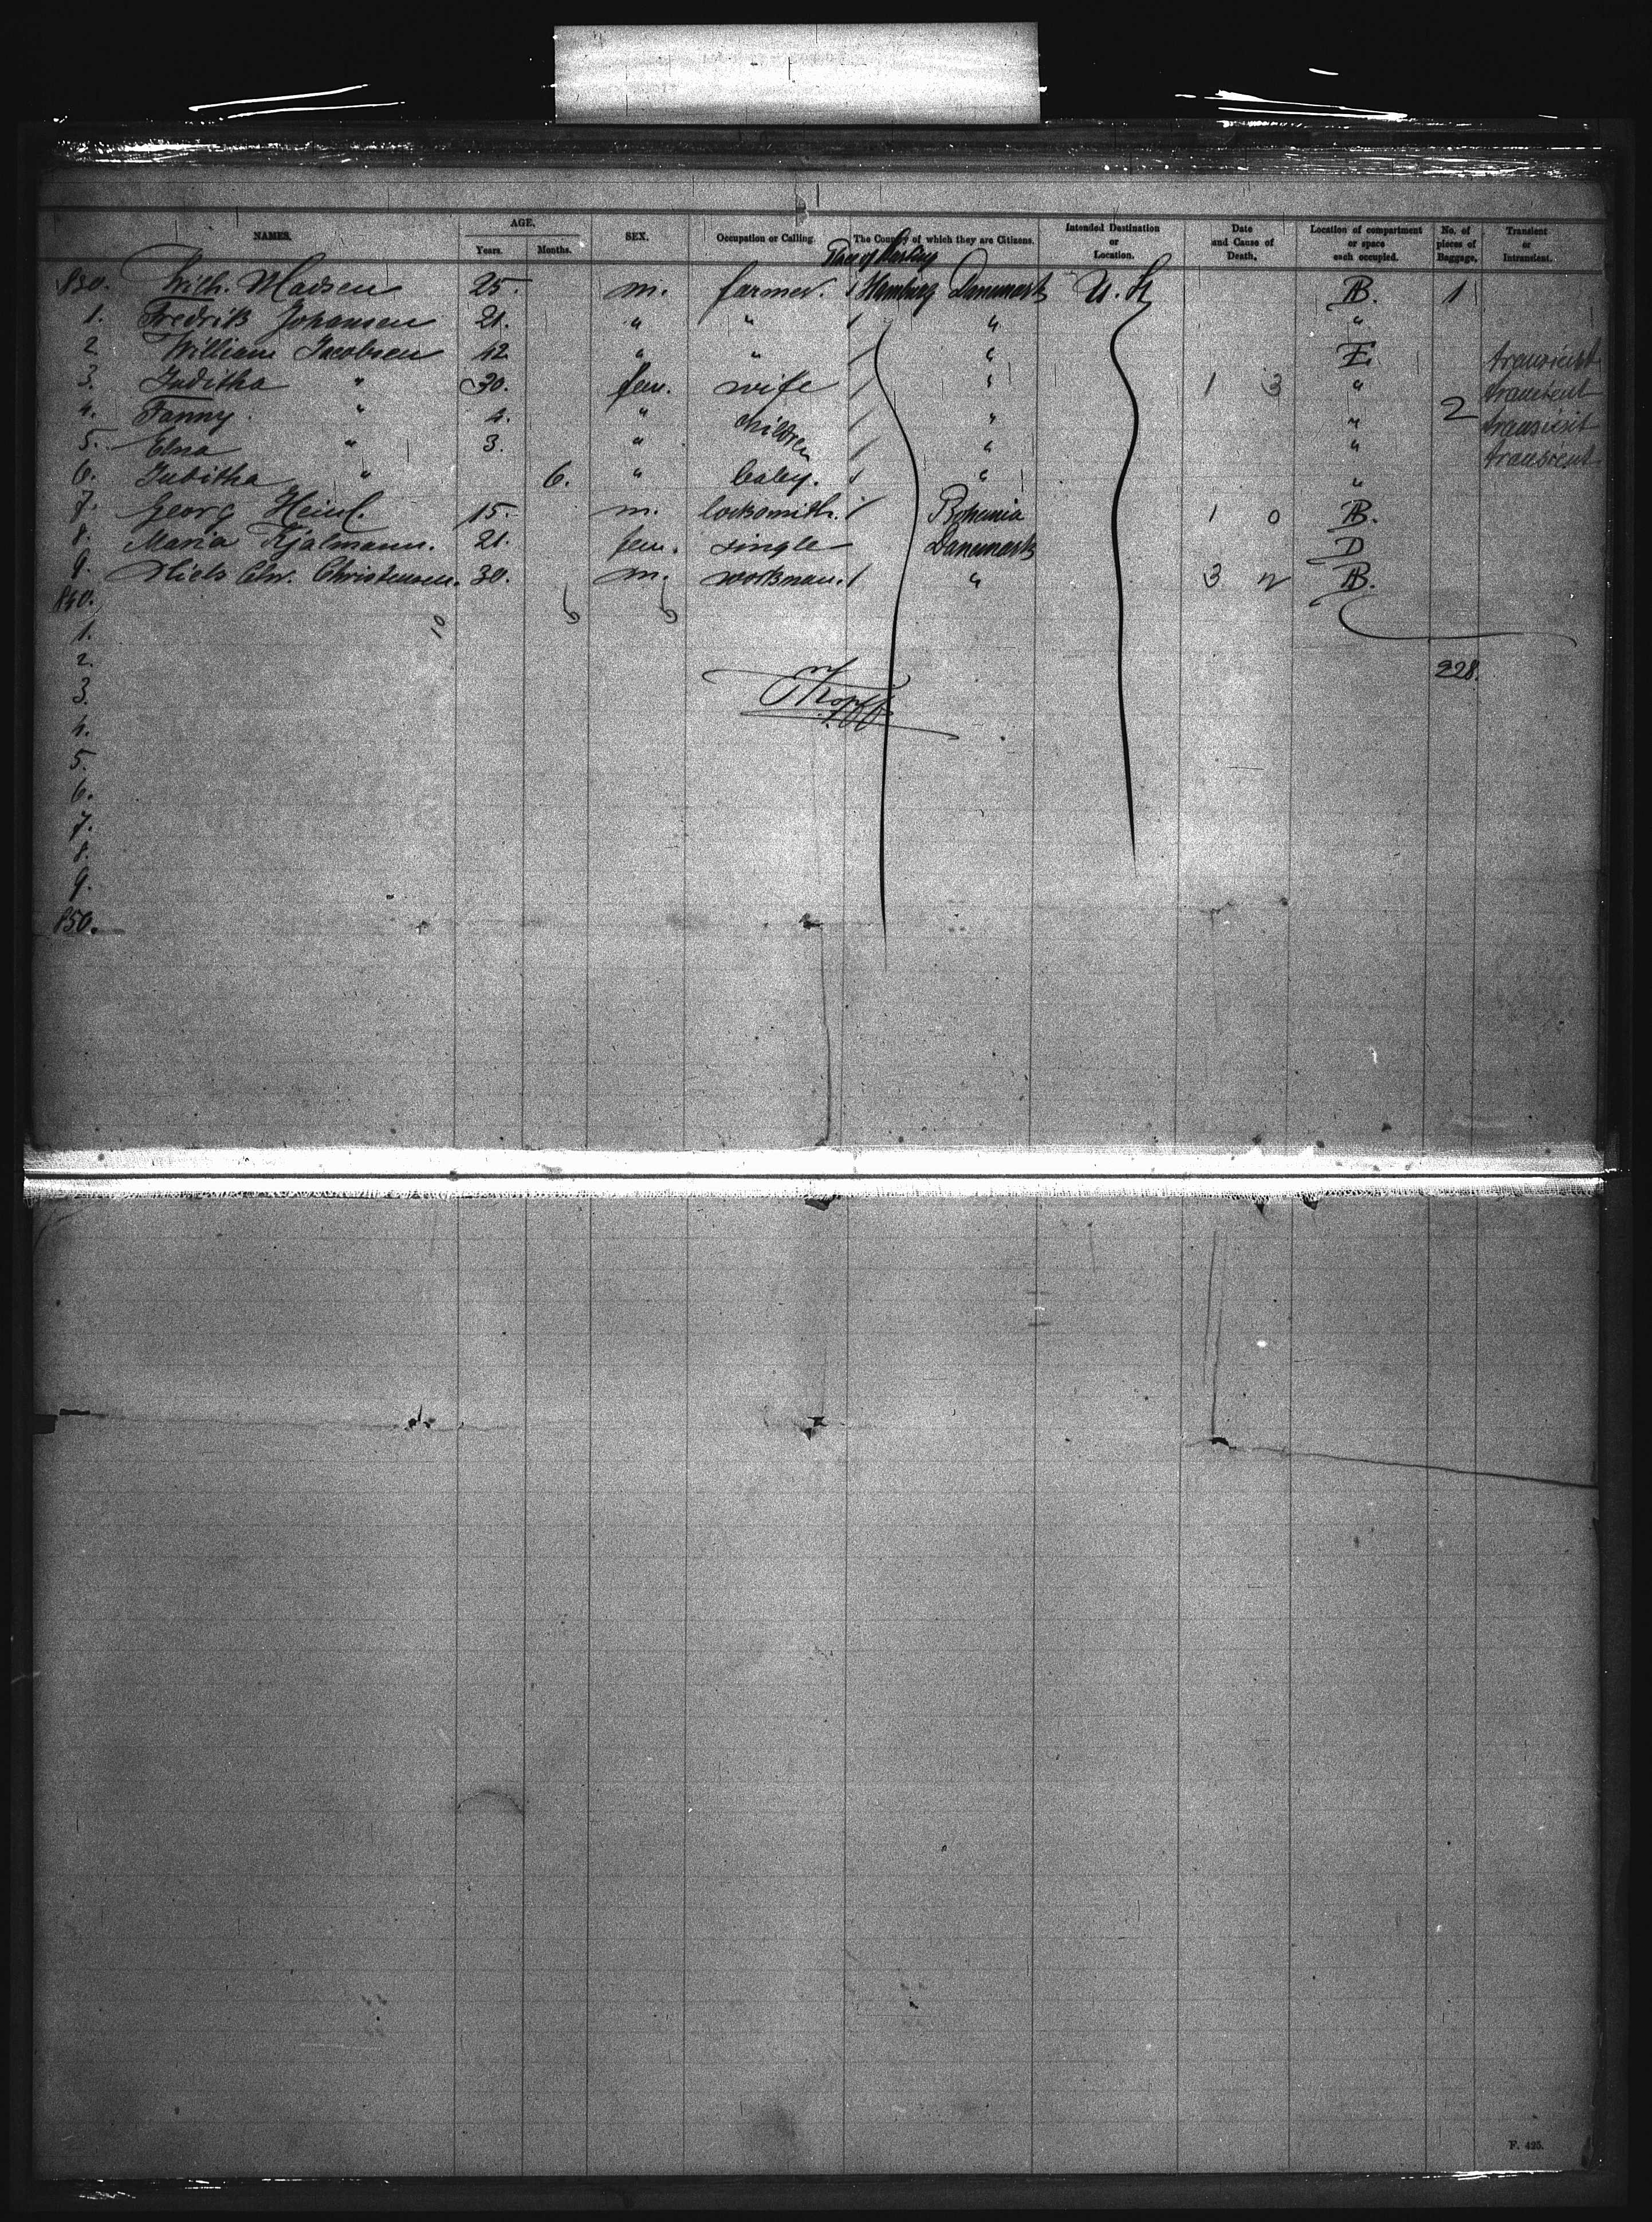 NAMES. AGE. Years. Months. SEX. Occupation or Calling. The Country of which they are Citizens. Intended Destination or Location. Date and Cause of Death. Location of compartment or space each occupied. No. of pieces of Baggage. Transient or Intransient.
Place of
830. Wilh. Madsen 25. m. farmer. / Hamburg Danemark U. St. AB. 1
1. Fredrik Johansen 21. " " / " "
2. William Jacobsen 42 " " / " E. transient
3. Juditha " 30. fem. wife / " 1 3 " transient
4. Fanny. " 4. " children / " " 2 transient
5. Elna " 3. " / " " transient
6. Juditha " 6. " baby. / " "
7. Georg Heinl. 15. m. locksmith. / Bohemia 1 0 AB.
8. Maria Hjalmann. 21. fem. single Danemark D
9. Niels Chr. Christensen. 30. m. workman. / " 3 n AB.
840.
1.
2. 228.
3.
4.
5.
6.
7.
8.
9.
850.
F. 425.